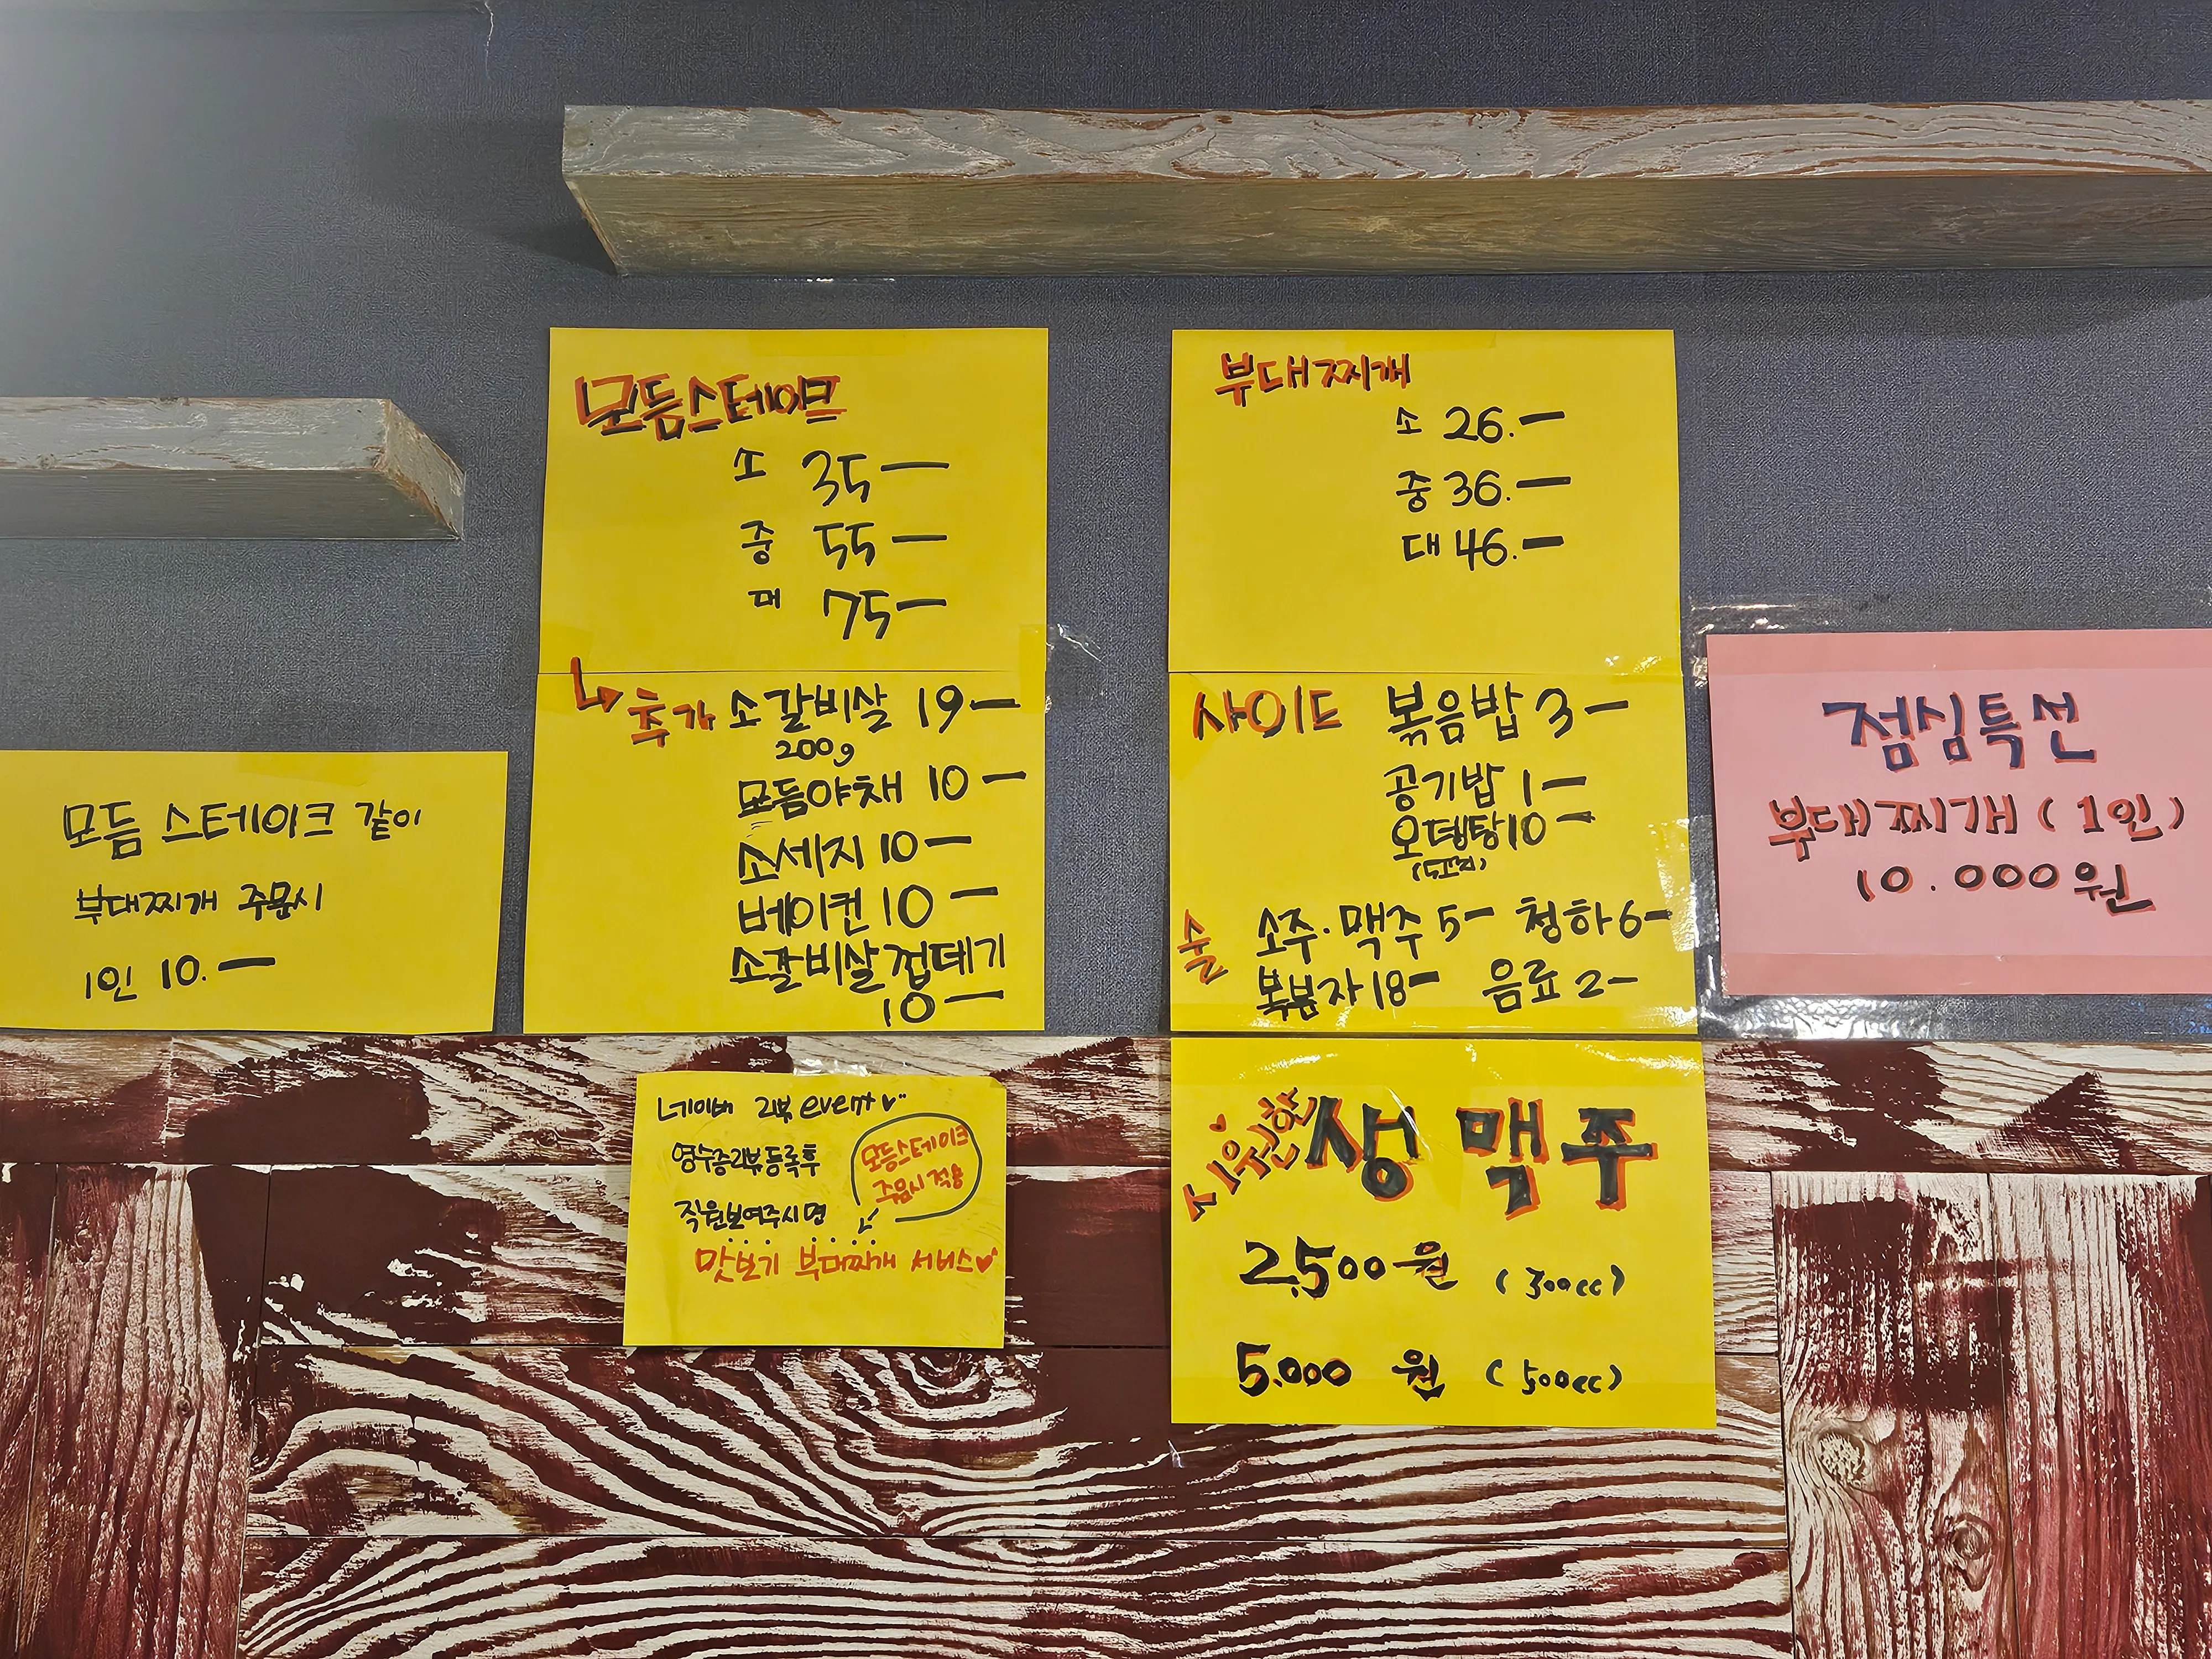 모듬스테이크
소 35—
중 55—
대 75—
추가 소갈비살 19—
200g
모듬야채 10—
소세지 10—
베이컨 10—
소갈비살껍데기
10—
부대찌개
소 26.—
중 36.—
대 46.—
사이드 볶음밥 3—
공기밥 1—
오뎅탕 10—
술 소주·맥주 5— 청하 6—
복분자 18— 음료 2—
점심특선
부대찌개 (1인)
10.000원
모듬 스테이크 같이
부대찌개 주문시
1인 10.—
네이버 리뷰 event
영수증리뷰등록후
직원보여주시면
모듬스테이크
주문시 적용
맛보기 부대찌개 서비스♥
시원한 생맥주
2,500원 (300cc)
5.000 원 (500cc)